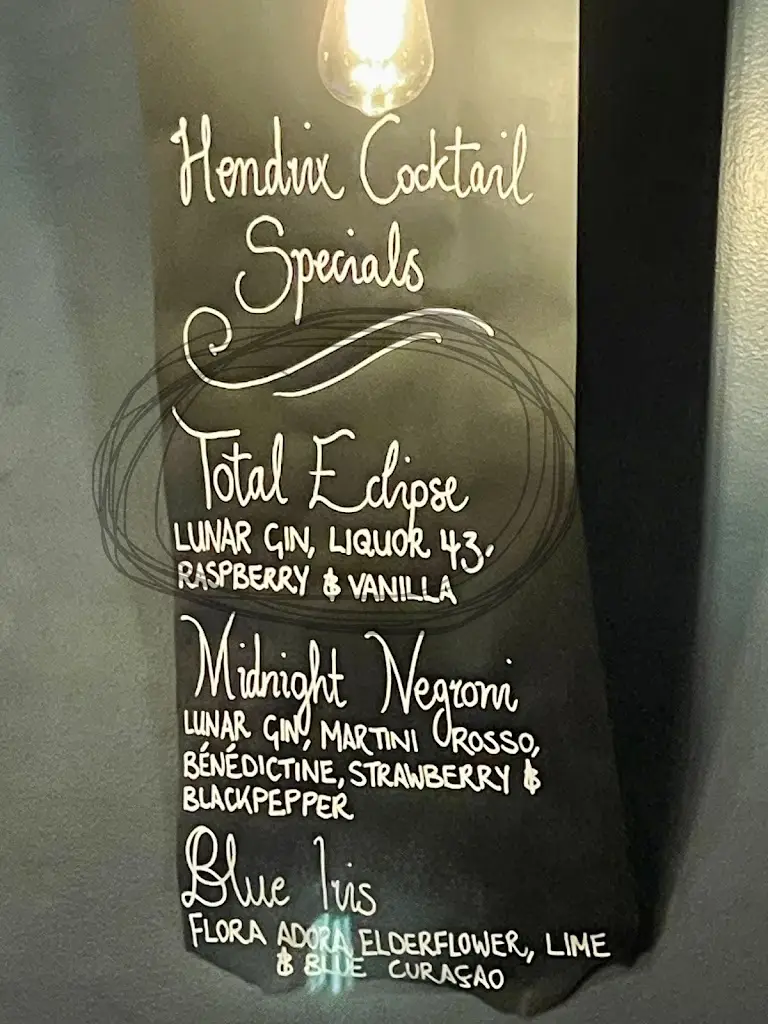 Hendrix Cocktail
Specials
Total Eclipse
LUNAR GIN, LIQUOR 43,
RASPBERRY & VANILLA
Midnight Negroni
LUNAR GIN, MARTINI ROSSO,
BÉNÉDICTINE, STRAWBERRY &
BLACKPEPPER
Blue Iris
FLORA ADORA, ELDERFLOWER, LIME
& BLUE CURAÇAO